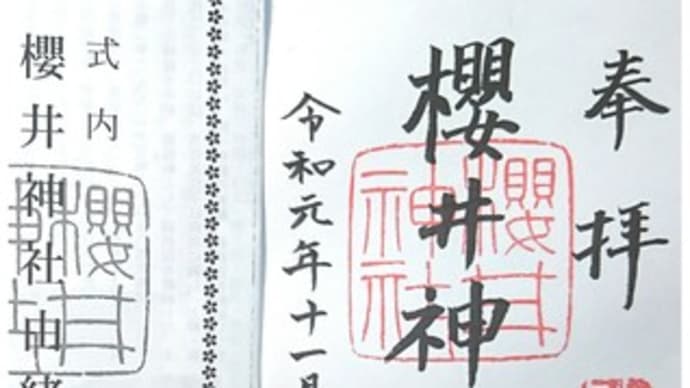 奉拝
櫻井神
櫻井神社
令和元年十一月
式内
櫻井神社由緒
櫻井